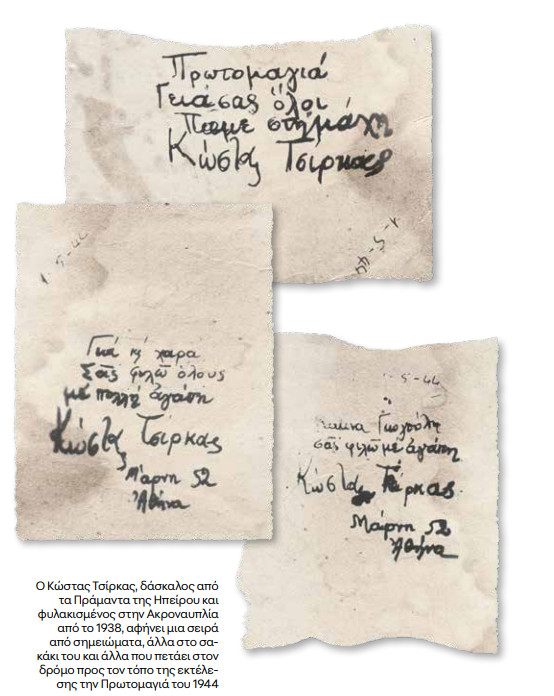 Πρωτομαγιά
Γειά σας ὅλοι
Πᾶμε στή μάχη
Κώστας Τσίρκας
1-5-44
1-5-44
Γειά κή χαρά
Σᾶς φιλῶ ὅλους
μέ πολλή ἀγάπη
Κώστας Τσίρκας
Μάρνη 52
Ἀθήνα
5-44
σᾶς φιλῶ με ἀγάπη
Κώστας Τσίρκας
Μάρνη 52
Ἀθήνα
Ο Κώστας Τσίρκας, δάσκαλος από
τα Πράμαντα της Ηπείρου και
φυλακισμένος στην Ακροναυπλία
από το 1938, αφήνει μια σειρά
από σημειώματα, άλλα στο σα-
κάκι του και άλλα που πετάει στον
δρόμο προς τον τόπο της εκτέλε-
σης την Πρωτομαγιά του 1944